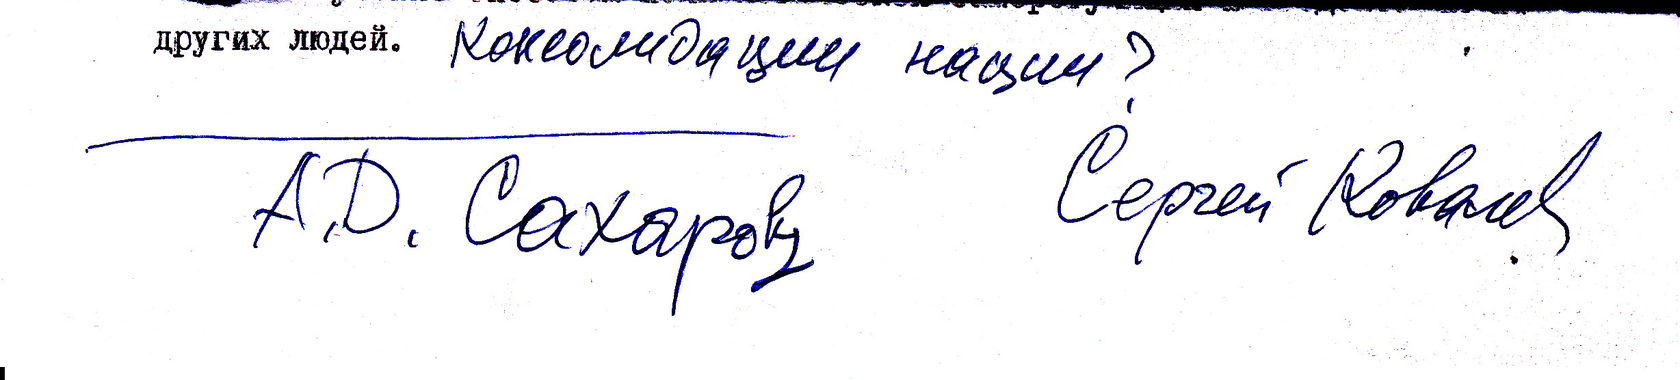 других людей. Консолидации нации?
А.Д. Сахаров Сергей Ковалев